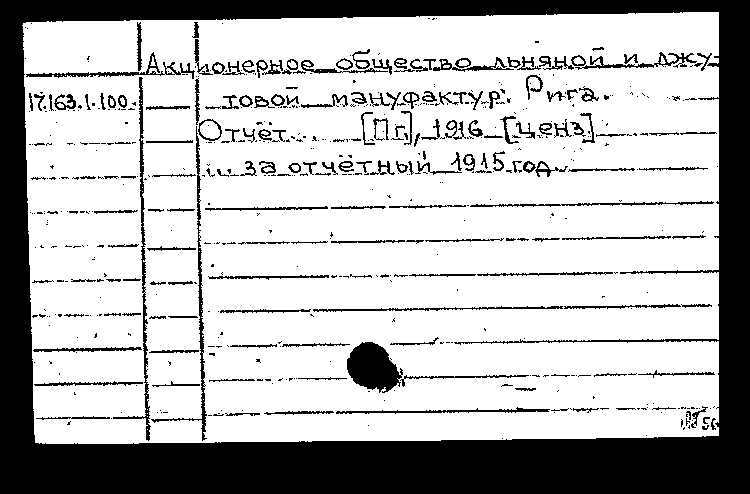 Акционерное общество льняной и джу-
17.163.1.100. товой мануфактур. Рига.
Отчёт... [Пг.], 1916 [ценз]
... за отчётный 1915 год...
56